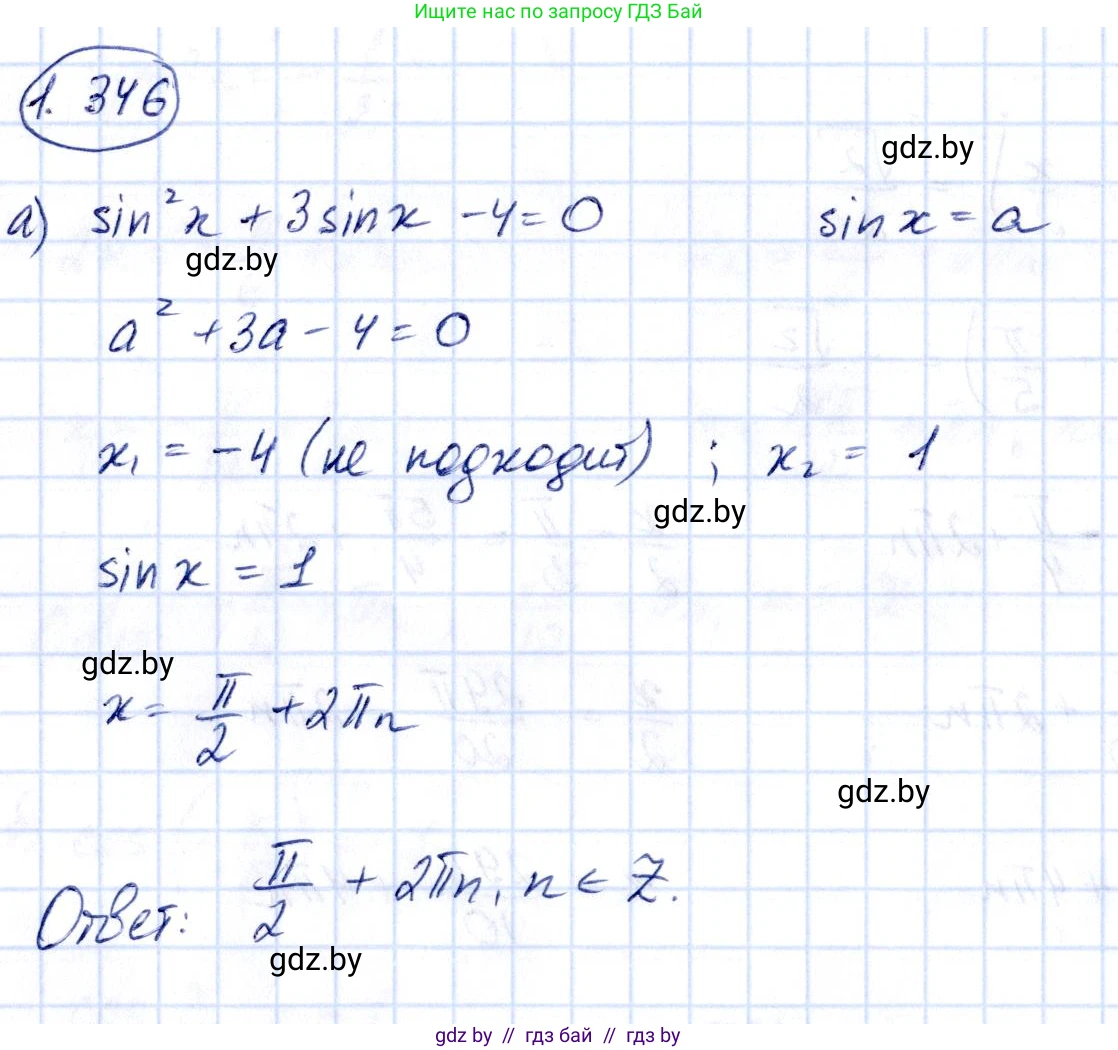 Ищите нас по запросу ГДЗ Бай
1. 346
gdz.by
а) sin²x + 3sinx - 4 = 0 sin x = a
gdz.by
a² + 3a - 4 = 0
x₁ = -4 (не подходит) ; x₂ = 1
gdz.by
sin x = 1
gdz.by
x = π/2 + 2πn
gdz.by
Ответ: π/2 + 2πn, n ∈ Z.
gdz.by
gdz by // гдз бай // гdz by